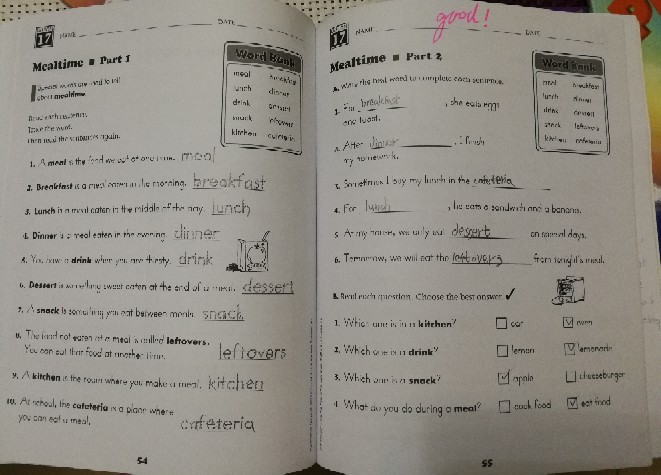 17
NAME
DATE
Mealtime ■ Part 1
Special words are used to tell
about mealtime.
Read each sentence.
Trace the word.
Then read the sentences again.
Word Bank
meal breakfast
lunch dinner
drink dessert
snack leftovers
kitchen cafeteria
1. A meal is the food we eat at one time. meal
2. Breakfast is a meal eaten in the morning. breakfast
3. Lunch is a meal eaten in the middle of the day. lunch
4. Dinner is a meal eaten in the evening. dinner
5. You have a drink when you are thirsty. drink
6. Dessert is something sweet eaten at the end of a meal. dessert
7. A snack is something you eat between meals. snack
8. The food not eaten at a meal is called leftovers.
You can eat that food at another time. leftovers
9. A kitchen is the room where you make a meal. kitchen
10. At school, the cafeteria is a place where
you can eat a meal. cafeteria
54
good!
17
NAME
DATE
Mealtime ■ Part 2
A. Write the best word to complete each sentence.
Word Bank
meal breakfast
lunch dinner
drink dessert
snack leftovers
kitchen cafeteria
1. For breakfast, she eats eggs
and toast.
2. After dinner, I finish
my homework.
3. Sometimes I buy my lunch in the cafeteria
4. For lunch, he eats a sandwich and a banana.
5. At my house, we only eat desert on special days.
6. Tomorrow, we will eat the leftovers from tonight's meal.
B. Read each question. Choose the best answer. ✓
1. Which one is in a kitchen? car oven
2. Which one is a drink? lemon lemonade
3. Which one is a snack? apple cheeseburger
4. What do you do during a meal? cook food eat food
55